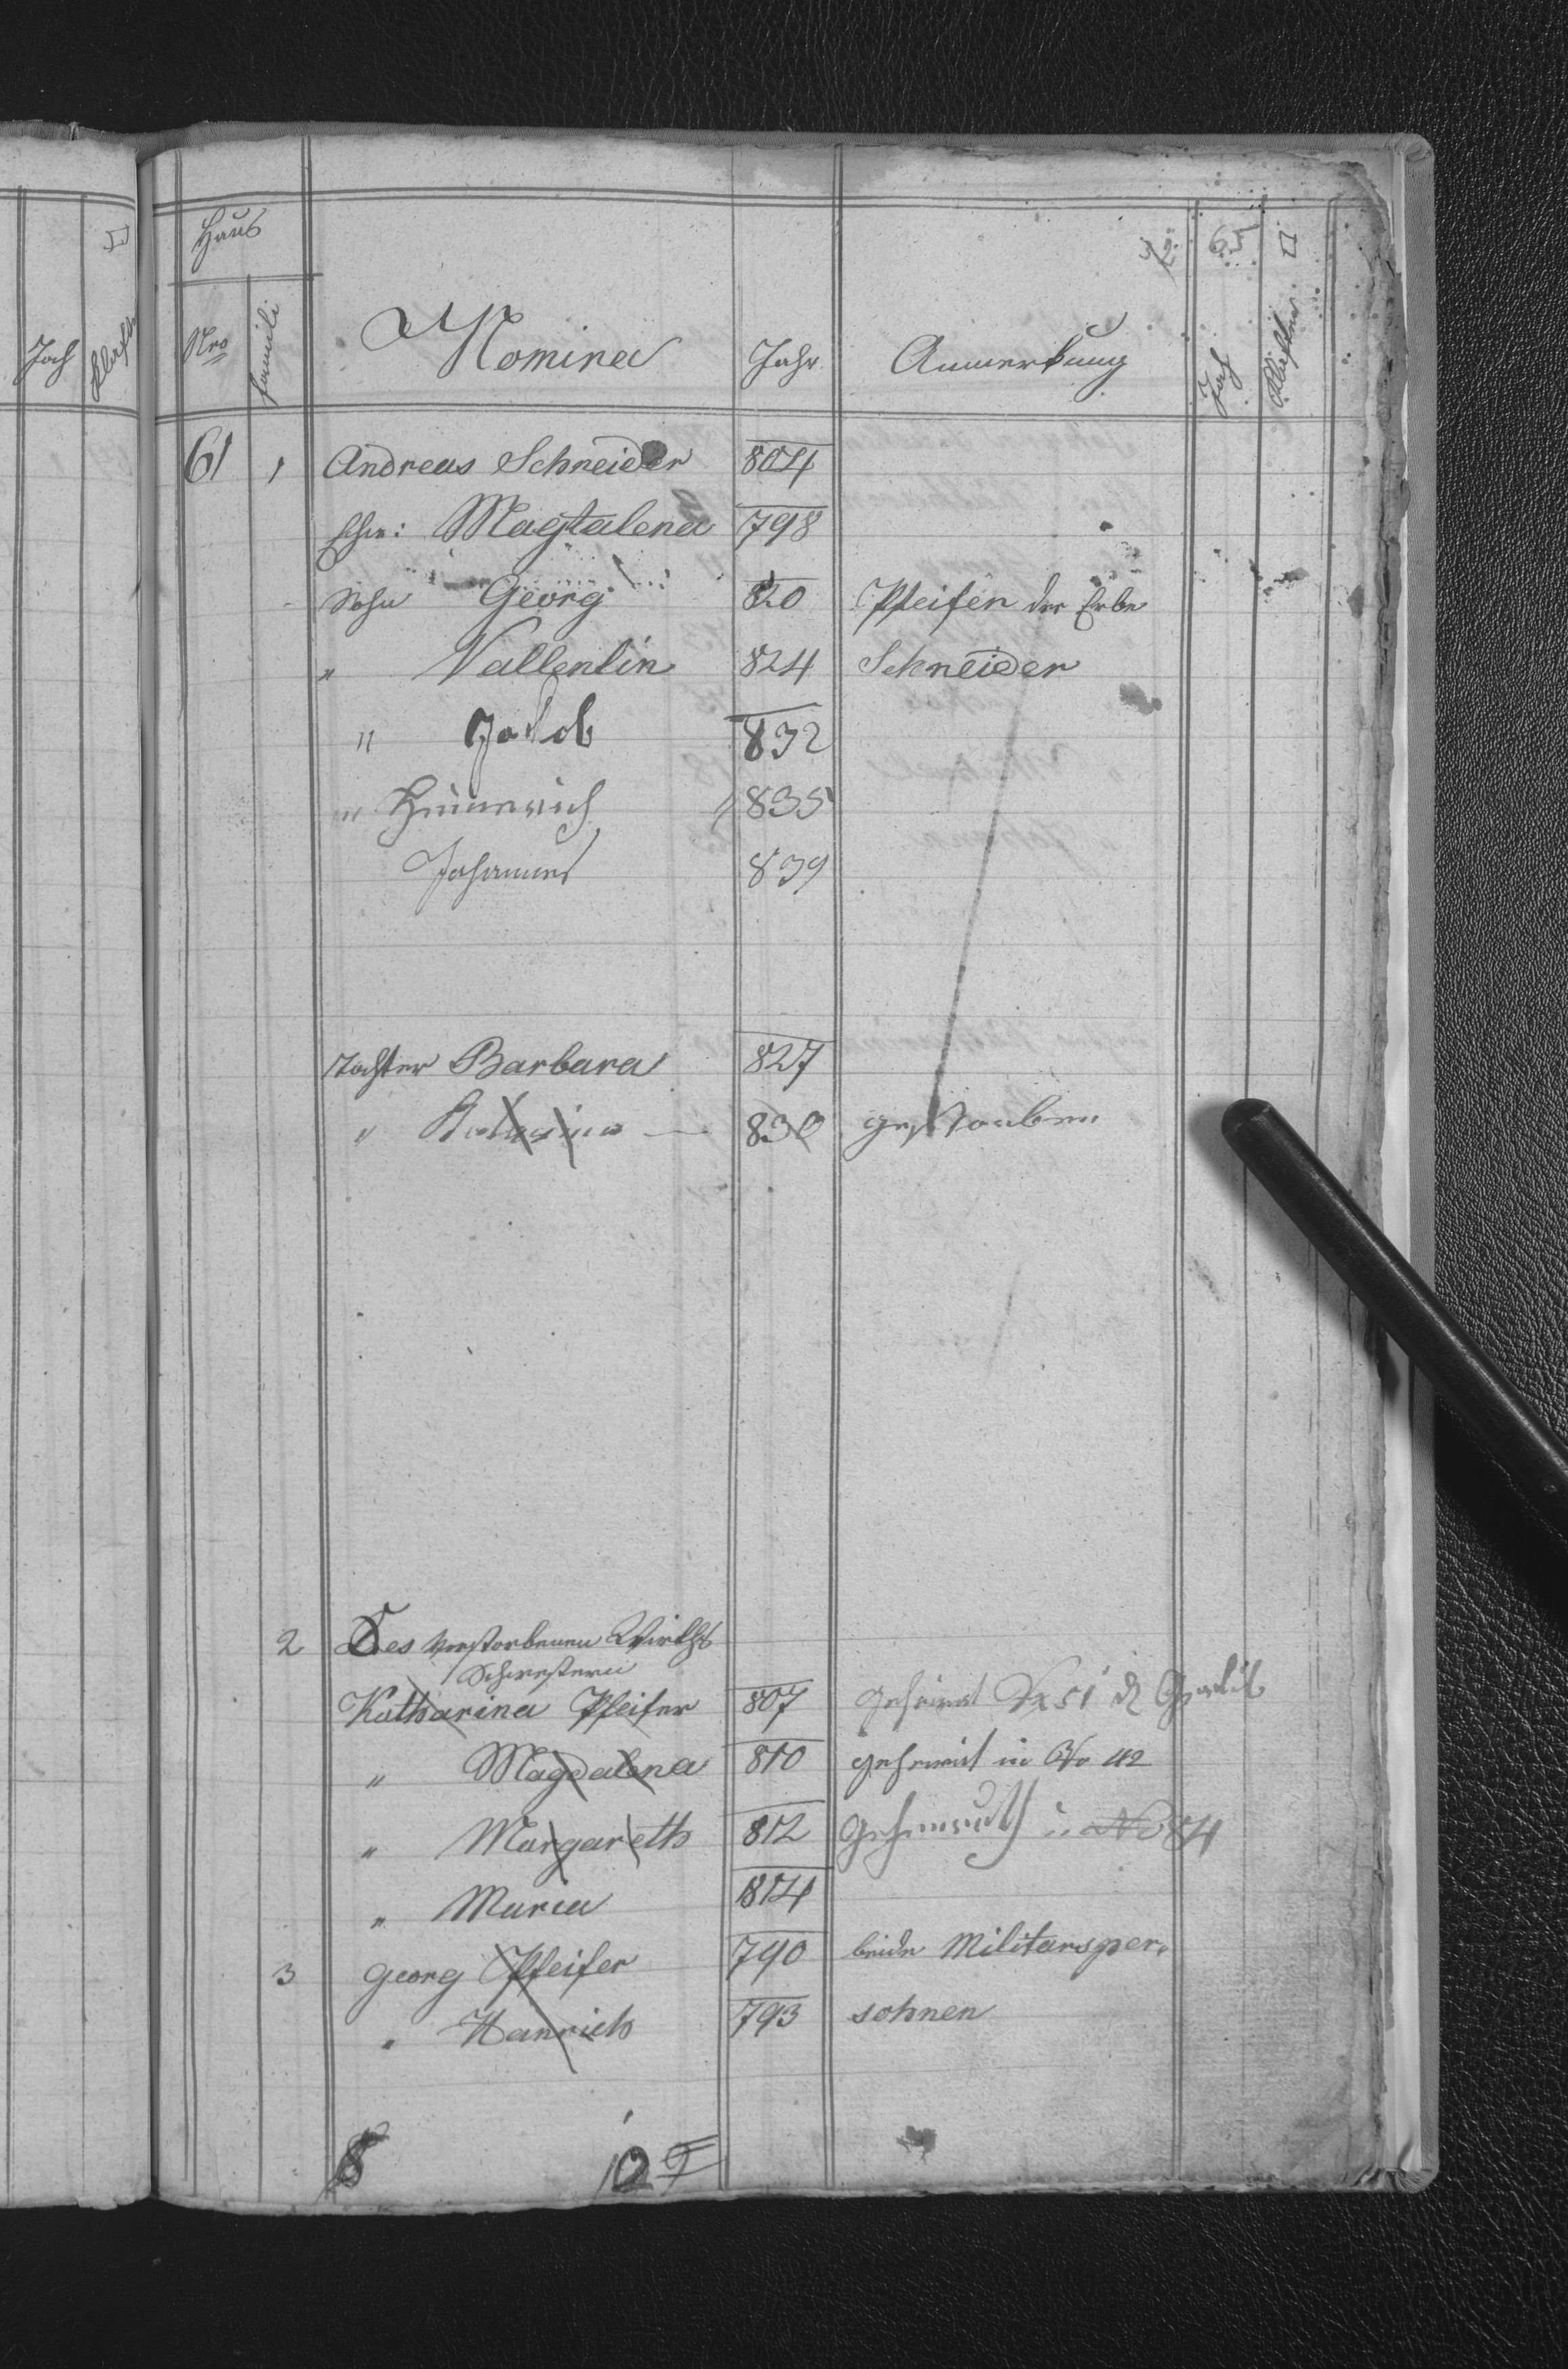 Joch
Haus
Nro
familie
Nomina
Jahr
Anmerkung
Joch
Klafter
61 1 Andreas Schneider 804
Ehw: Magtalena 798
Sohn Georg 820 Pfeifer der Erbe
" Vallentin 824 Schneider
" Jakob 832
" Heinnrich 835
Johannes 839
Tochter Barbara 827
" 830 gestorben
2 Des verstorbenen Wirths
Schwestern
Katharina Pfeifer 807 geheirat 51
" Magdalena 810 geheirat in No 42
" Margareth 812 Geheirath in No 84
" Maria 814
3 Georg Pfeifer 790 beide Militärsper,
" Hanrich 793 sohnen
8